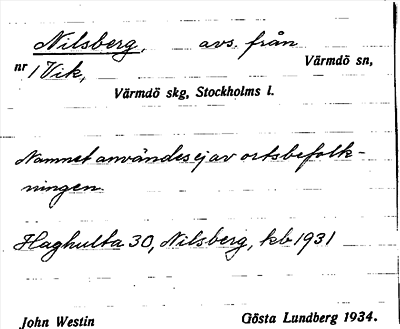 Nilsberg, avs. från
nr 1 Vik, Värmdö sn,
Värmdö skg, Stockholms l.
Namnet användes ej av ortsbefolk-
ningen.
Haghulta 30, Nilsberg, kb 1931
John Westin Gösta Lundberg 1934.